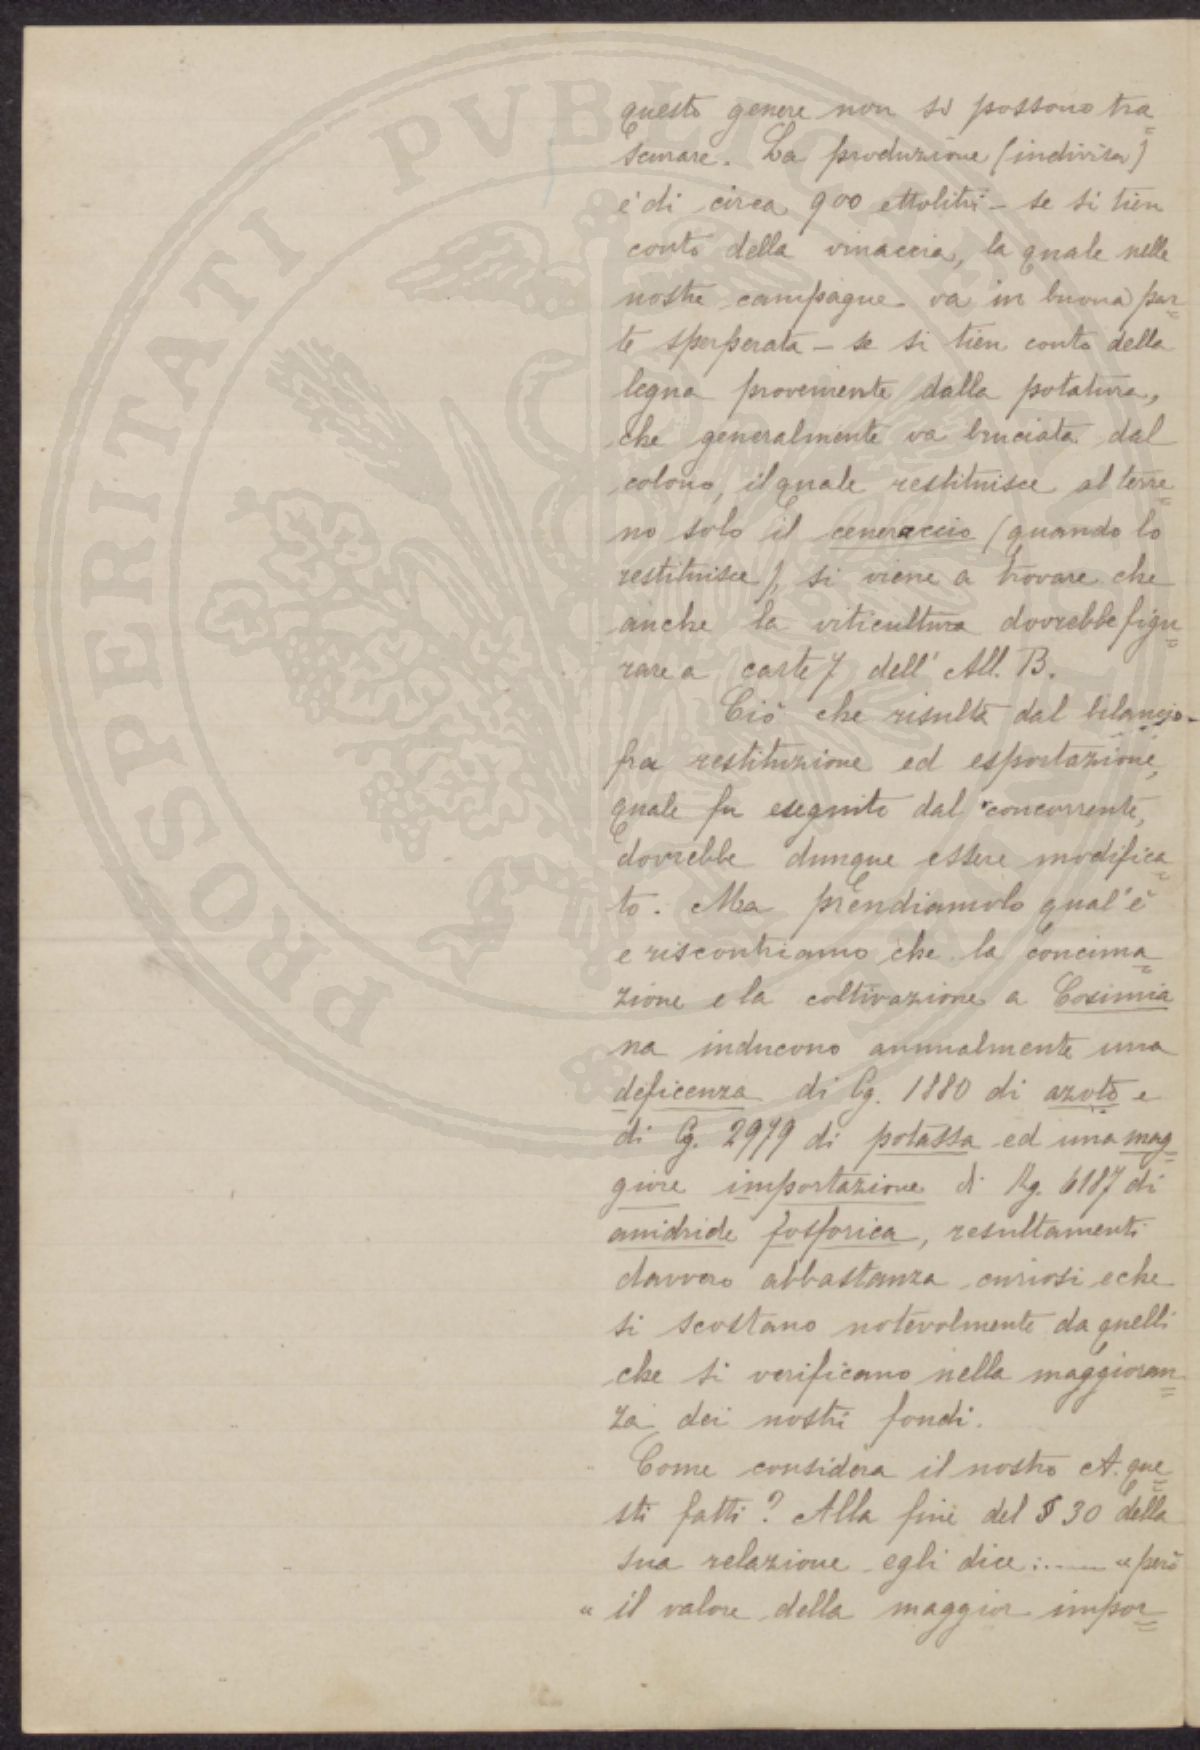 questo genere non si possono tra=
scurare. La produzione (indivisa)
è di circa 900 ettolitri - se si tien
conto della vinaccia, la quale nelle
nostre campagne va in buona par=
te sperperata - se si tien conto della
legna proveniente dalla potatura,
che generalmente va bruciata dal
colono, il quale restituisce al terre=
no solo il ceneraccio (quando lo
restituisce), si viene a trovare che
anche la viticultura dovrebbe figu=
rare a carte 7 dell' All. B.
Ciò che risulta dal bilancio
fra restituzione ed esportazione,
quale fu eseguito dal concorrente,
dovrebbe dunque essere modifica=
to. Ma prendiamolo qual'è
e riscontriamo che la concima=
zione e la coltivazione a Cosimia
na inducono annualmente una
deficenza di Cg. 1880 di azoto e
di Cg. 2979 di potassa ed una mag=
giore importazione di Kg. 6187 di
anidride fosforica, resultamenti
davvero abbastanza curiosi e che
si scostano notevolmente da quelli
che si verificano nella maggioran=
za dei nostri fondi.
Come considera il nostro A. que=
sti fatti? Alla fine del § 30 della
sua relazione egli dice:..... "però
" il valore della maggior impor=
PROSPERITATI PVBLICAE